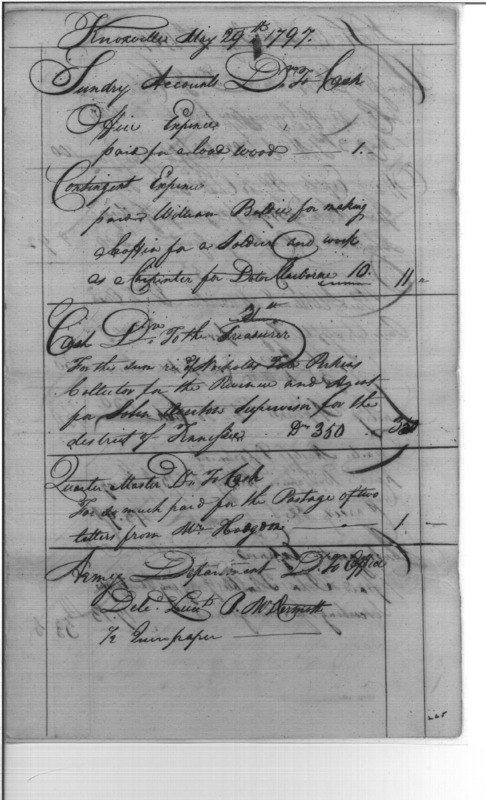 Knoxville May 29th 1797.
Sundry Accounts Drs To Cash
Office Expences
paid for a load wood 1.-
Contingent Expence
paid William for making
a Coffin for a Soldier and work
as a Carpenter for Doctor Claiborne 10. 11 -
31st
Cash Dr To the Treasurer
For this sum of Nicholas Perkins
Collector for the Revenue and Agent
for John Supervisor for the
district of Tennessee. Drs 350 350
Quarter Master Dr To Cash
For so much paid for the Postage of two
letters from Mr Hodgdon 1. -
Army Department Dr To Office
Deld Lieut P. McDermott
1/2 Quire paper